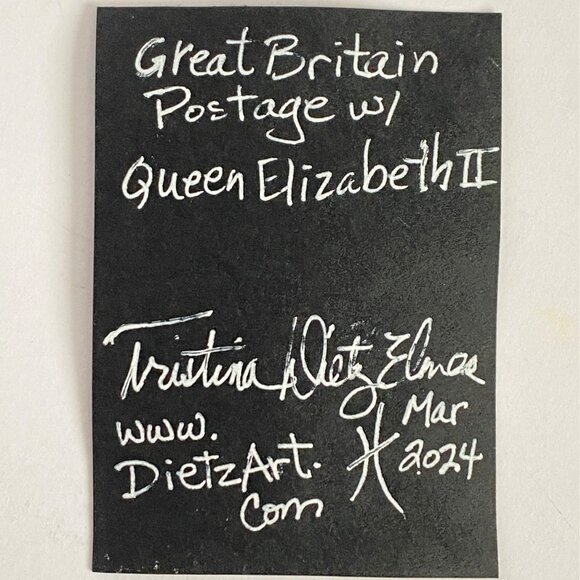 Great Britain
Postage w/
Queen Elizabeth II
Tristina Dietz Elmes
www. Mar
DietzArt. 2024
Com